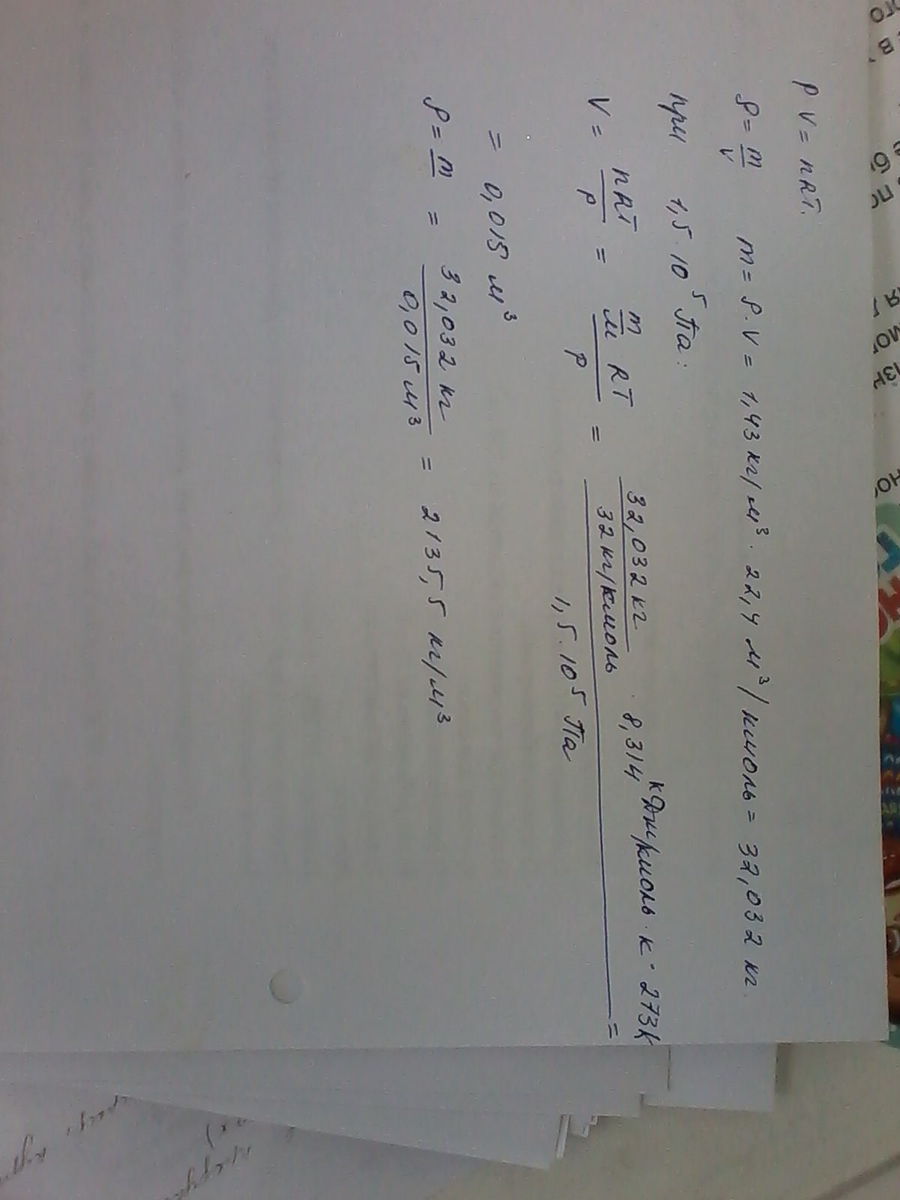 PV = nRT.
ρ = m/V   m = ρ·V = 1,43 кг/м³ · 22,4 м³/кмоль = 32,032 кг.
при 1,5·10⁵ Па:
V = nRT/P = (m/M RT)/P = (32,032 кг/32 кг/кмоль · 8,314 кДж/кмоль·К · 273К)/(1,5·10⁵ Па) =
= 0,015 м³
ρ = m/ = 32,032 кг/0,015 м³ = 2135,5 кг/м³